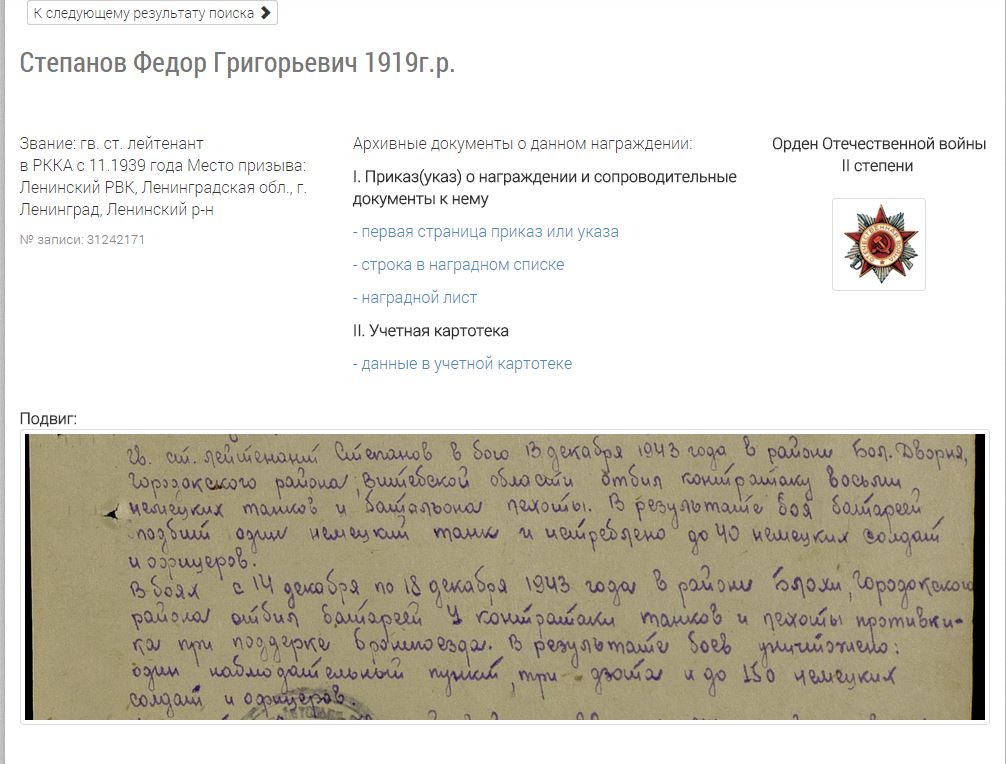 К следующему результату поиска
Степанов Федор Григорьевич 1919г.р.
Звание: гв. ст. лейтенант
в РККА с 11.1939 года Место призыва:
Ленинский РВК, Ленинградская обл., г.
Ленинград, Ленинский р-н
№ записи: 31242171
Архивные документы о данном награждении:
I. Приказ(указ) о награждении и сопроводительные
документы к нему
- первая страница приказ или указа
- строка в наградном списке
- наградной лист
II. Учетная картотека
- данные в учетной картотеке
Орден Отечественной войны
II степени
Подвиг:
гв. ст. лейтенант Степанов в бою 13 декабря 1943 года в районе Бол. Дворня,
Городокского района, Витебской области отбил контратаку восьми
немецких танков и батальона пехоты. В результате боя батареей
подбит один немецкий танк и истреблено до 40 немецких солдат
и офицеров.
В боях с 14 декабря по 18 декабря 1943 года в районе Блохи, Городокского
района отбил батареей 4 контратаки танков и пехоты противни-
ка при поддержке бронпоезда. В результате боев уничтожено:
один наблюдательный пункт, три дзота и до 150 немецких
солдат и офицеров.